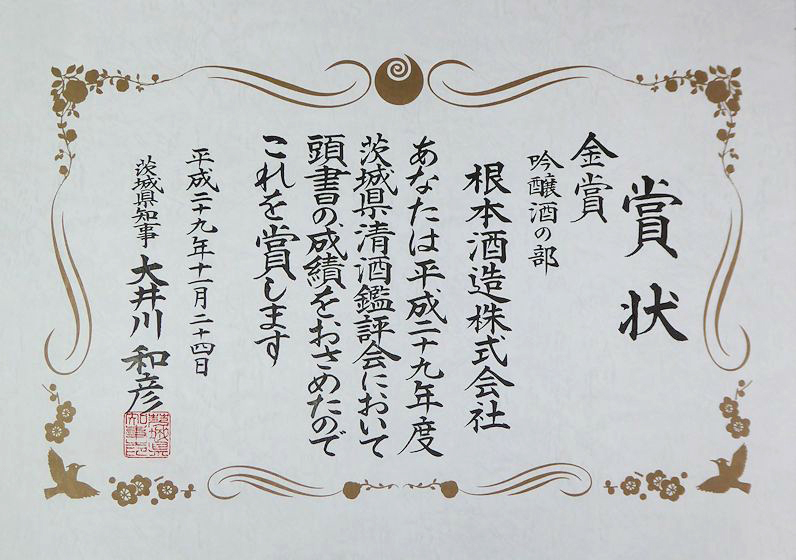 賞状
金賞
吟醸酒の部
根本酒造株式会社
あなたは平成二十九年度
茨城県清酒鑑評会において
頭書の成績をおさめたので
これを賞します
平成二十九年十一月二十四日
茨城県知事 大井川 和彦